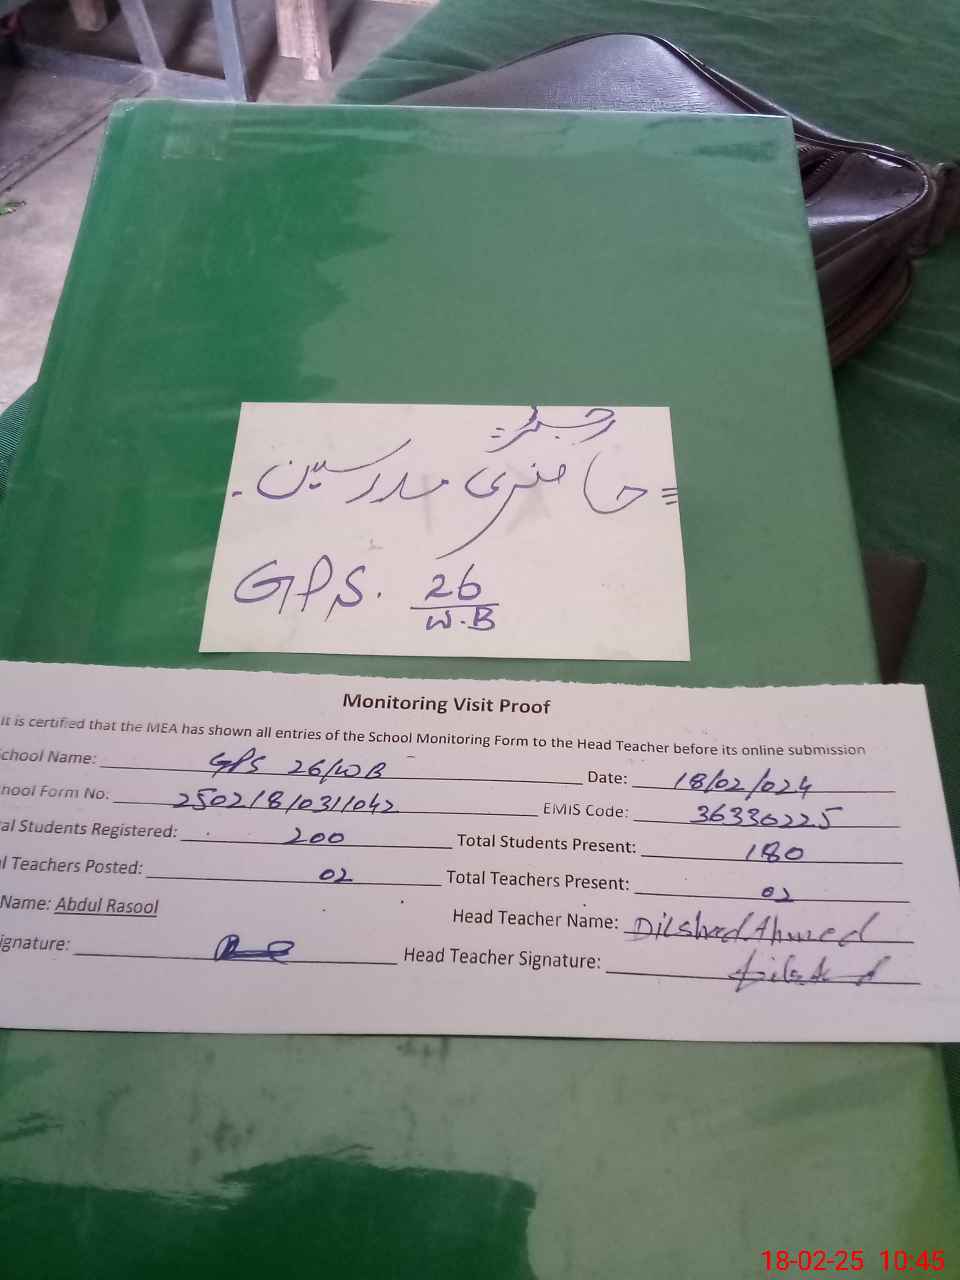 رجسٹر
حاضری مدرسین
GPS. 26/W.B
Monitoring Visit Proof
it is certified that the MEA has shown all entries of the School Monitoring Form to the Head Teacher before its online submission
chool Name: GPS 26/WB Date: 18/02/024
hool Form No: 2502/8/031/042 EMIS Code: 36330225
al Students Registered: 200 Total Students Present: 180
l Teachers Posted: 02 Total Teachers Present: 02
Name: Abdul Rasool Head Teacher Name: Dilshad Ahmed
ignature: Head Teacher Signature:
18-02-25 10:45